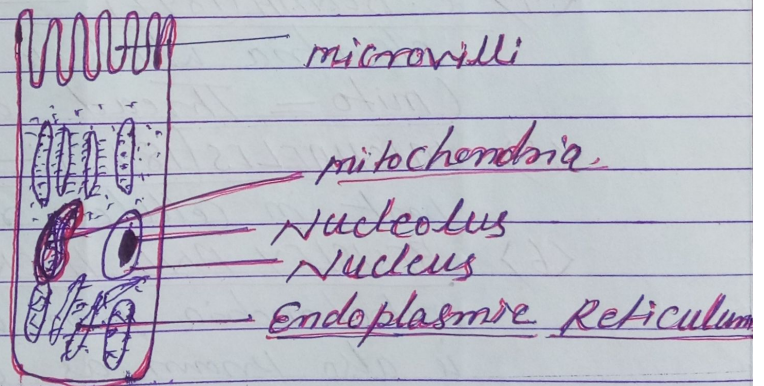 microvilli
mitochondria.
Nucleolus
Nucleus
Endoplasmic Reticulum